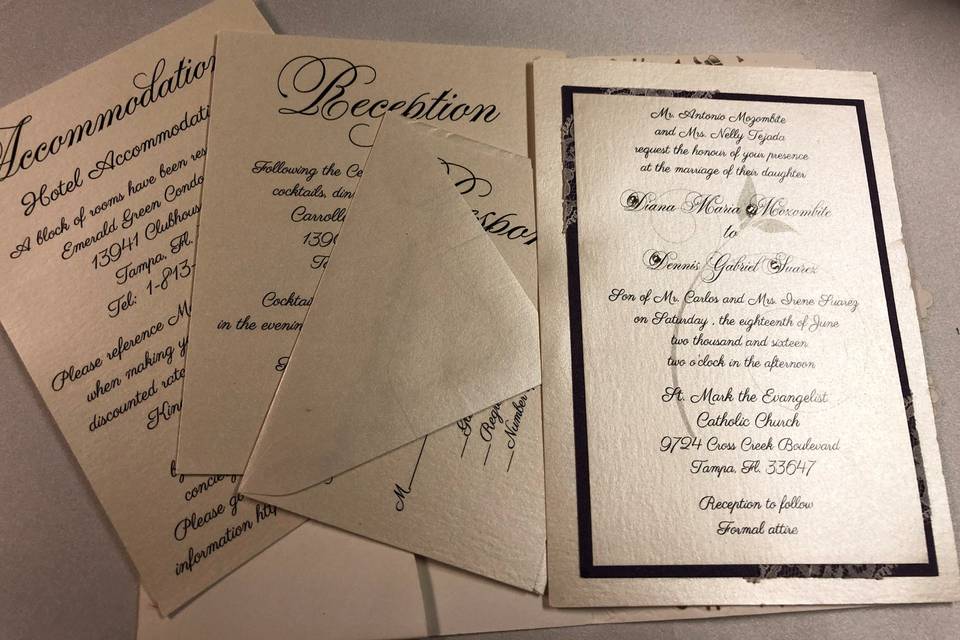 Accommodation
Hotel Accommodati
A block of rooms have been res
Emerald Green Condo
13941 Clubhous
Tampa, FL.
Tel: 1-813-
Please reference M
when making y
discounted rate
Kin
concie
Please go
information htt
Reception
Following the Ce
cocktails, din
Carroll
139
Ta
Cocktai
in the evenin
Respon
M
Regr
Number
Mr. Antonio Mozombite
and Mrs. Nelly Tejada
request the honour of your presence
at the marriage of their daughter
Diana Maria Mozombite
to
Dennis Gabriel Suarez
Son of Mr. Carlos and Mrs. Irene Suarez
on Saturday , the eighteenth of June
two thousand and sixteen
two o'clock in the afternoon
St. Mark the Evangelist
Catholic Church
9724 Cross Creek Boulevard
Tampa, FL. 33647
Reception to follow
Formal attire